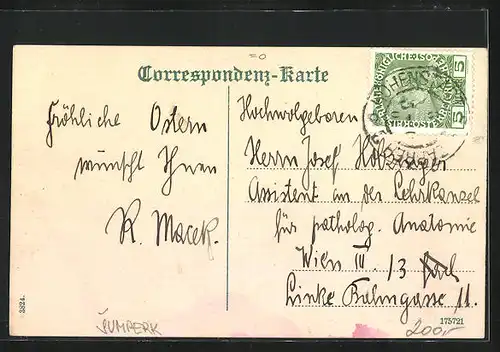 Correspondenz-Karte
Fröhliche Ostern
wünscht Ihnen
R. Macek.
Hochwolgeboren
Herrn Josef
Assistent an der Lehrkanzel
für patholog. Anatomie
Wien III. 13
Linke Bahngasse 11.
5 5
3824.
175721
ŠUMPERK
200,-